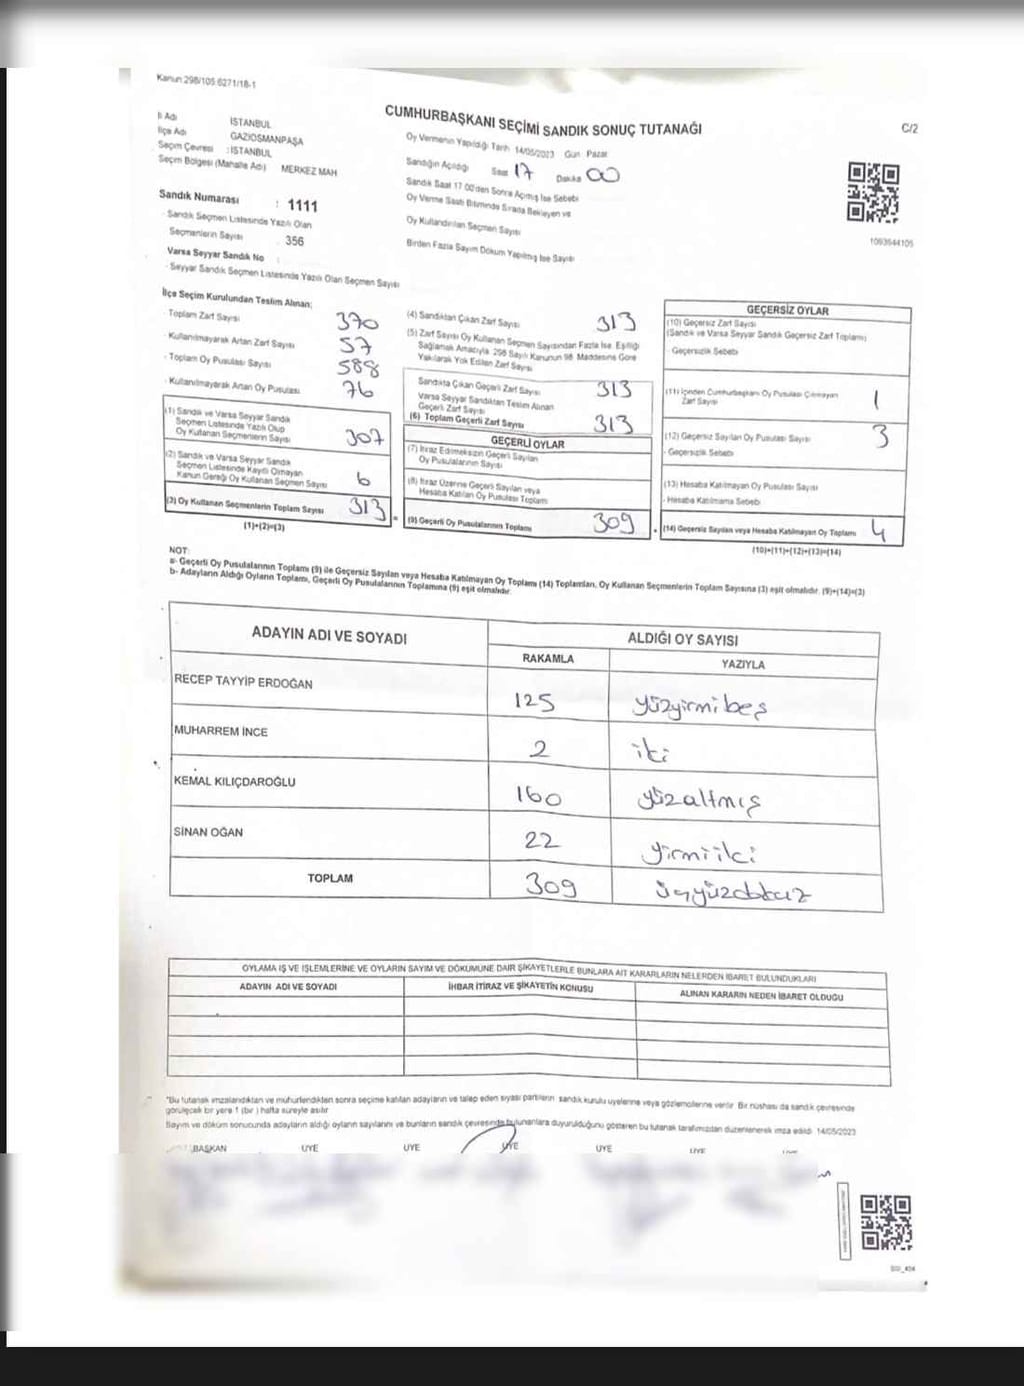 Kanun:298/105 6271/18-1
CUMHURBAŞKANI SEÇİMİ SANDIK SONUÇ TUTANAĞI
C/2
İl Adı İSTANBUL
İlçe Adı GAZİOSMANPAŞA
Seçim Çevresi : İSTANBUL
Seçim Bölgesi (Mahalle Adı) MERKEZ MAH
Sandık Numarası : 1111
- Sandık Seçmen Listesinde Yazılı Olan
Seçmenlerin Sayısı 356
Varsa Seyyar Sandık No
- Seyyar Sandık Seçmen Listesinde Yazılı Olan Seçmen Sayısı
Oy Vermenin Yapıldığı Tarih 14/05/2023 Gün Pazar
Sandığın Açıldığı Saat 17 Dakika 00
Sandık Saat 17.00'den Sonra Açılmış İse Sebebi
Oy Verme Saati Bitiminde Sırada Bekleyen ve
Oy Kullandırılan Seçmen Sayısı
Birden Fazla Sayım Döküm Yapılmış İse Sayısı
1093644105
İlçe Seçim Kurulundan Teslim Alınan;
- Toplam Zarf Sayısı 370
- Kullanılmayarak Artan Zarf Sayısı 57
- Toplam Oy Pusulası Sayısı 588
- Kullanılmayarak Artan Oy Pusulası 76
(1) Sandık ve Varsa Seyyar Sandık
Seçmen Listesinde Yazılı Olup
Oy Kullanan Seçmenlerin Sayısı 307
(2) Sandık ve Varsa Seyyar Sandık
Seçmen Listesinde Kayıtlı Olmayan
Kanun Gereği Oy Kullanan Seçmen Sayısı 6
(3) Oy Kullanan Seçmenlerin Toplam Sayısı 313
(1)+(2)=(3)
(4) Sandıktan Çıkan Zarf Sayısı 313
(5) Zarf Sayısı Oy Kullanan Seçmen Sayısından Fazla İse, Eşitliği
Sağlamak Amacıyla 298 Sayılı Kanunun 98. Maddesine Göre
Yakılarak Yok Edilen Zarf Sayısı
Sandıkta Çıkan Geçerli Zarf Sayısı 313
Varsa Seyyar Sandıktan Teslim Alınan
Geçerli Zarf Sayısı
(6) Toplam Geçerli Zarf Sayısı 313
GEÇERLİ OYLAR
(7) İtiraz Edilmeksizin Geçerli Sayılan
Oy Pusulalarının Sayısı
(8) İtiraz Üzerine Geçerli Sayılan veya
Hesaba Katılan Oy Pusulası Toplamı
(9) Geçerli Oy Pusulalarının Toplamı 309
GEÇERSİZ OYLAR
(10) Geçersiz Zarf Sayısı
(Sandık ve Varsa Seyyar Sandık Geçersiz Zarf Toplamı)
- Geçersizlik Sebebi
(11) İçinden Cumhurbaşkanı Oy Pusulası Çıkmayan
Zarf Sayısı 1
(12) Geçersiz Sayılan Oy Pusulası Sayısı 3
- Geçersizlik Sebebi
(13) Hesaba Katılmayan Oy Pusulası Sayısı
- Hesaba Katılmama Sebebi
(14) Geçersiz Sayılan veya Hesaba Katılmayan Oy Toplamı 4
(10)+(11)+(12)+(13)=(14)
NOT:
a- Geçerli Oy Pusulalarının Toplamı (9) ile Geçersiz Sayılan veya Hesaba Katılmayan Oy Toplamı (14) Toplamları, Oy Kullanan Seçmenlerin Toplam Sayısına (3) eşit olmalıdır. (9)+(14)=(3)
b- Adayların Aldığı Oyların Toplamı, Geçerli Oy Pusulalarının Toplamına (9) eşit olmalıdır.
ADAYIN ADI VE SOYADI ALDIĞI OY SAYISI
RAKAMLA YAZIYLA
RECEP TAYYİP ERDOĞAN 125 yüzyirmibeş
MUHARREM İNCE 2 iki
KEMAL KILIÇDAROĞLU 160 yüzaltmış
SİNAN OĞAN 22 yirmiiki
TOPLAM 309 üçyüzdokuz
OYLAMA İŞ VE İŞLEMLERİNE VE OYLARIN SAYIM VE DÖKÜMÜNE DAİR ŞİKAYETLERLE BUNLARA AİT KARARLARIN NELERDEN İBARET BULUNDUKLARI
ADAYIN ADI VE SOYADI İHBAR İTİRAZ VE ŞİKAYETİN KONUSU ALINAN KARARIN NEDEN İBARET OLDUĞU
"Bu tutanak imzalandıktan ve mühürlendikten sonra seçime katılan adayların ve talep eden siyasi partilerin sandık kurulu üyelerine veya gözlemcilerine verilir. Bir nüshası da sandık çevresinde
görülecek bir yere 1 (bir) hafta süreyle asılır
Sayım ve döküm sonucunda adayların aldığı oyların sayılarını ve bunların sandık çevresinde bulunanlara duyurulduğunu gösteren bu tutanak tarafımızdan düzenlenerek imza edildi. 14/05/2023
BAŞKAN ÜYE ÜYE ÜYE ÜYE ÜYE